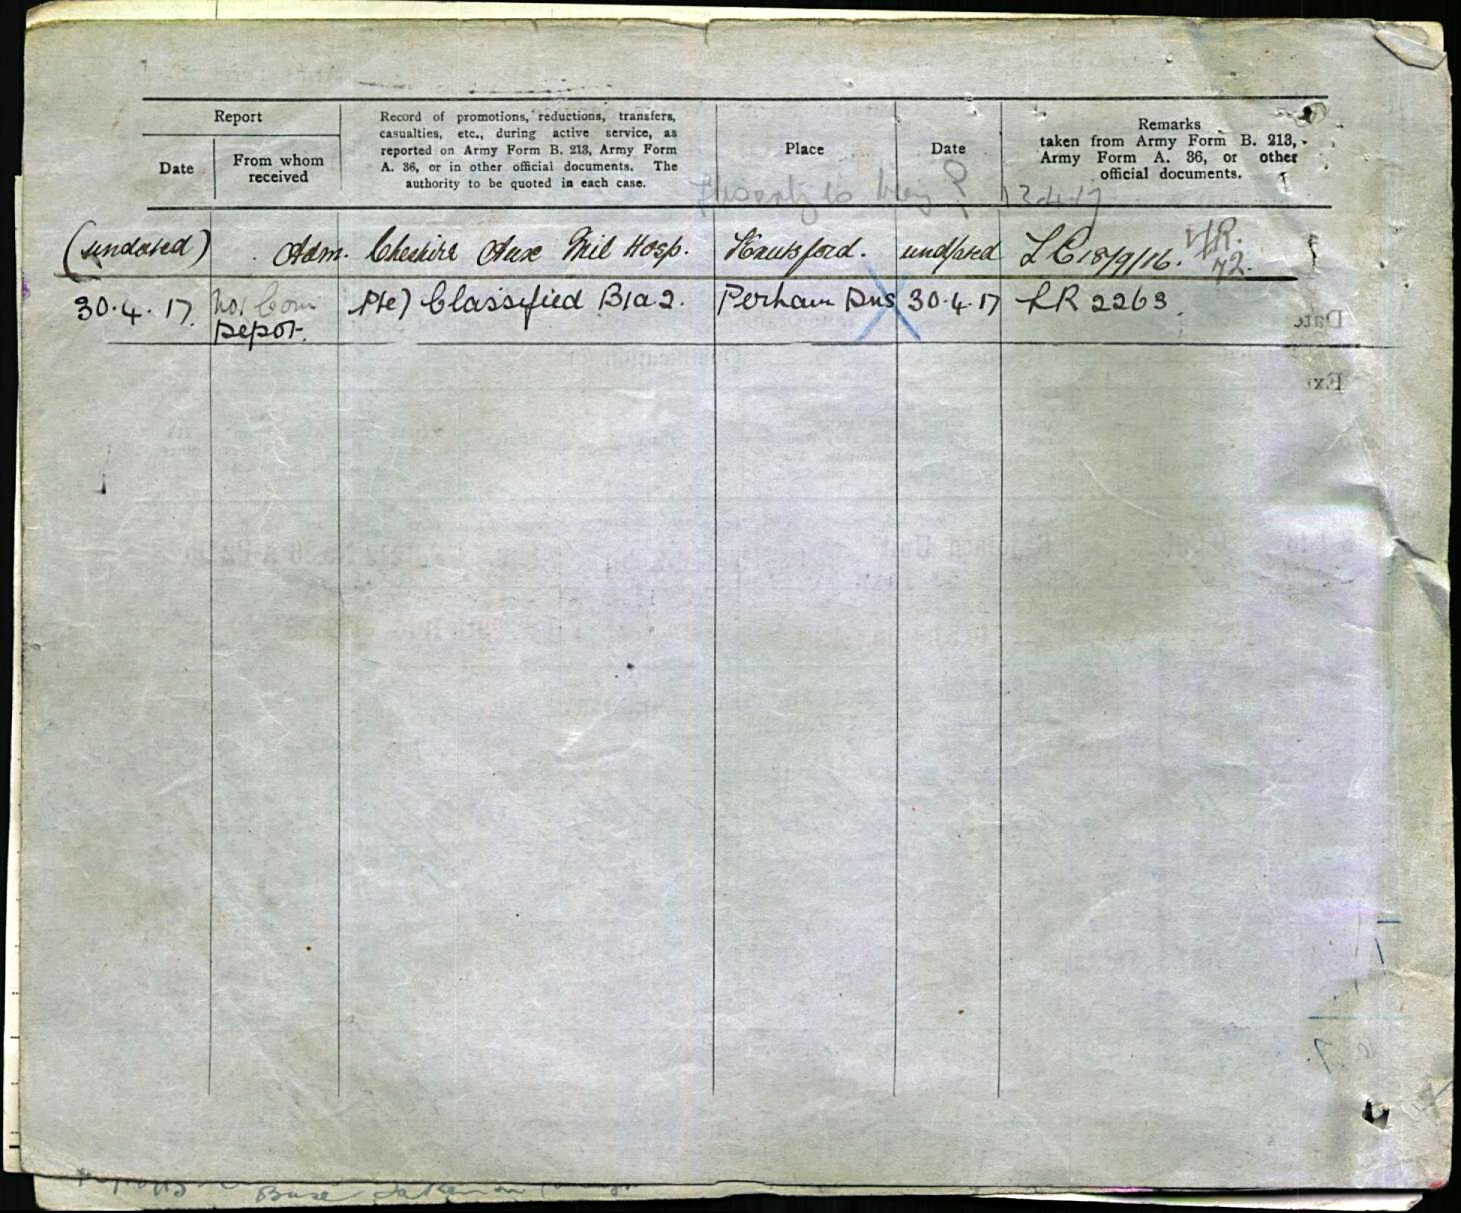 Report
Date
From whom
received
Record of promotions, reductions, transfers,
casualties, etc., during active service, as
reported on Army Form B. 213, Army Form
A. 36, or in other official documents. The
authority to be quoted in each case.
Place
Date
Remarks
taken from Army Form B. 213,
Army Form A. 36, or other
official documents.
(undated) Adm. Cheshire Aux Mil Hosp. Knutsford. undated L C 18/9/16.
72.
30.4.17. Classified B1a2. Perham Dns 30.4.17 RR 2263
Depot.
Date
Ex